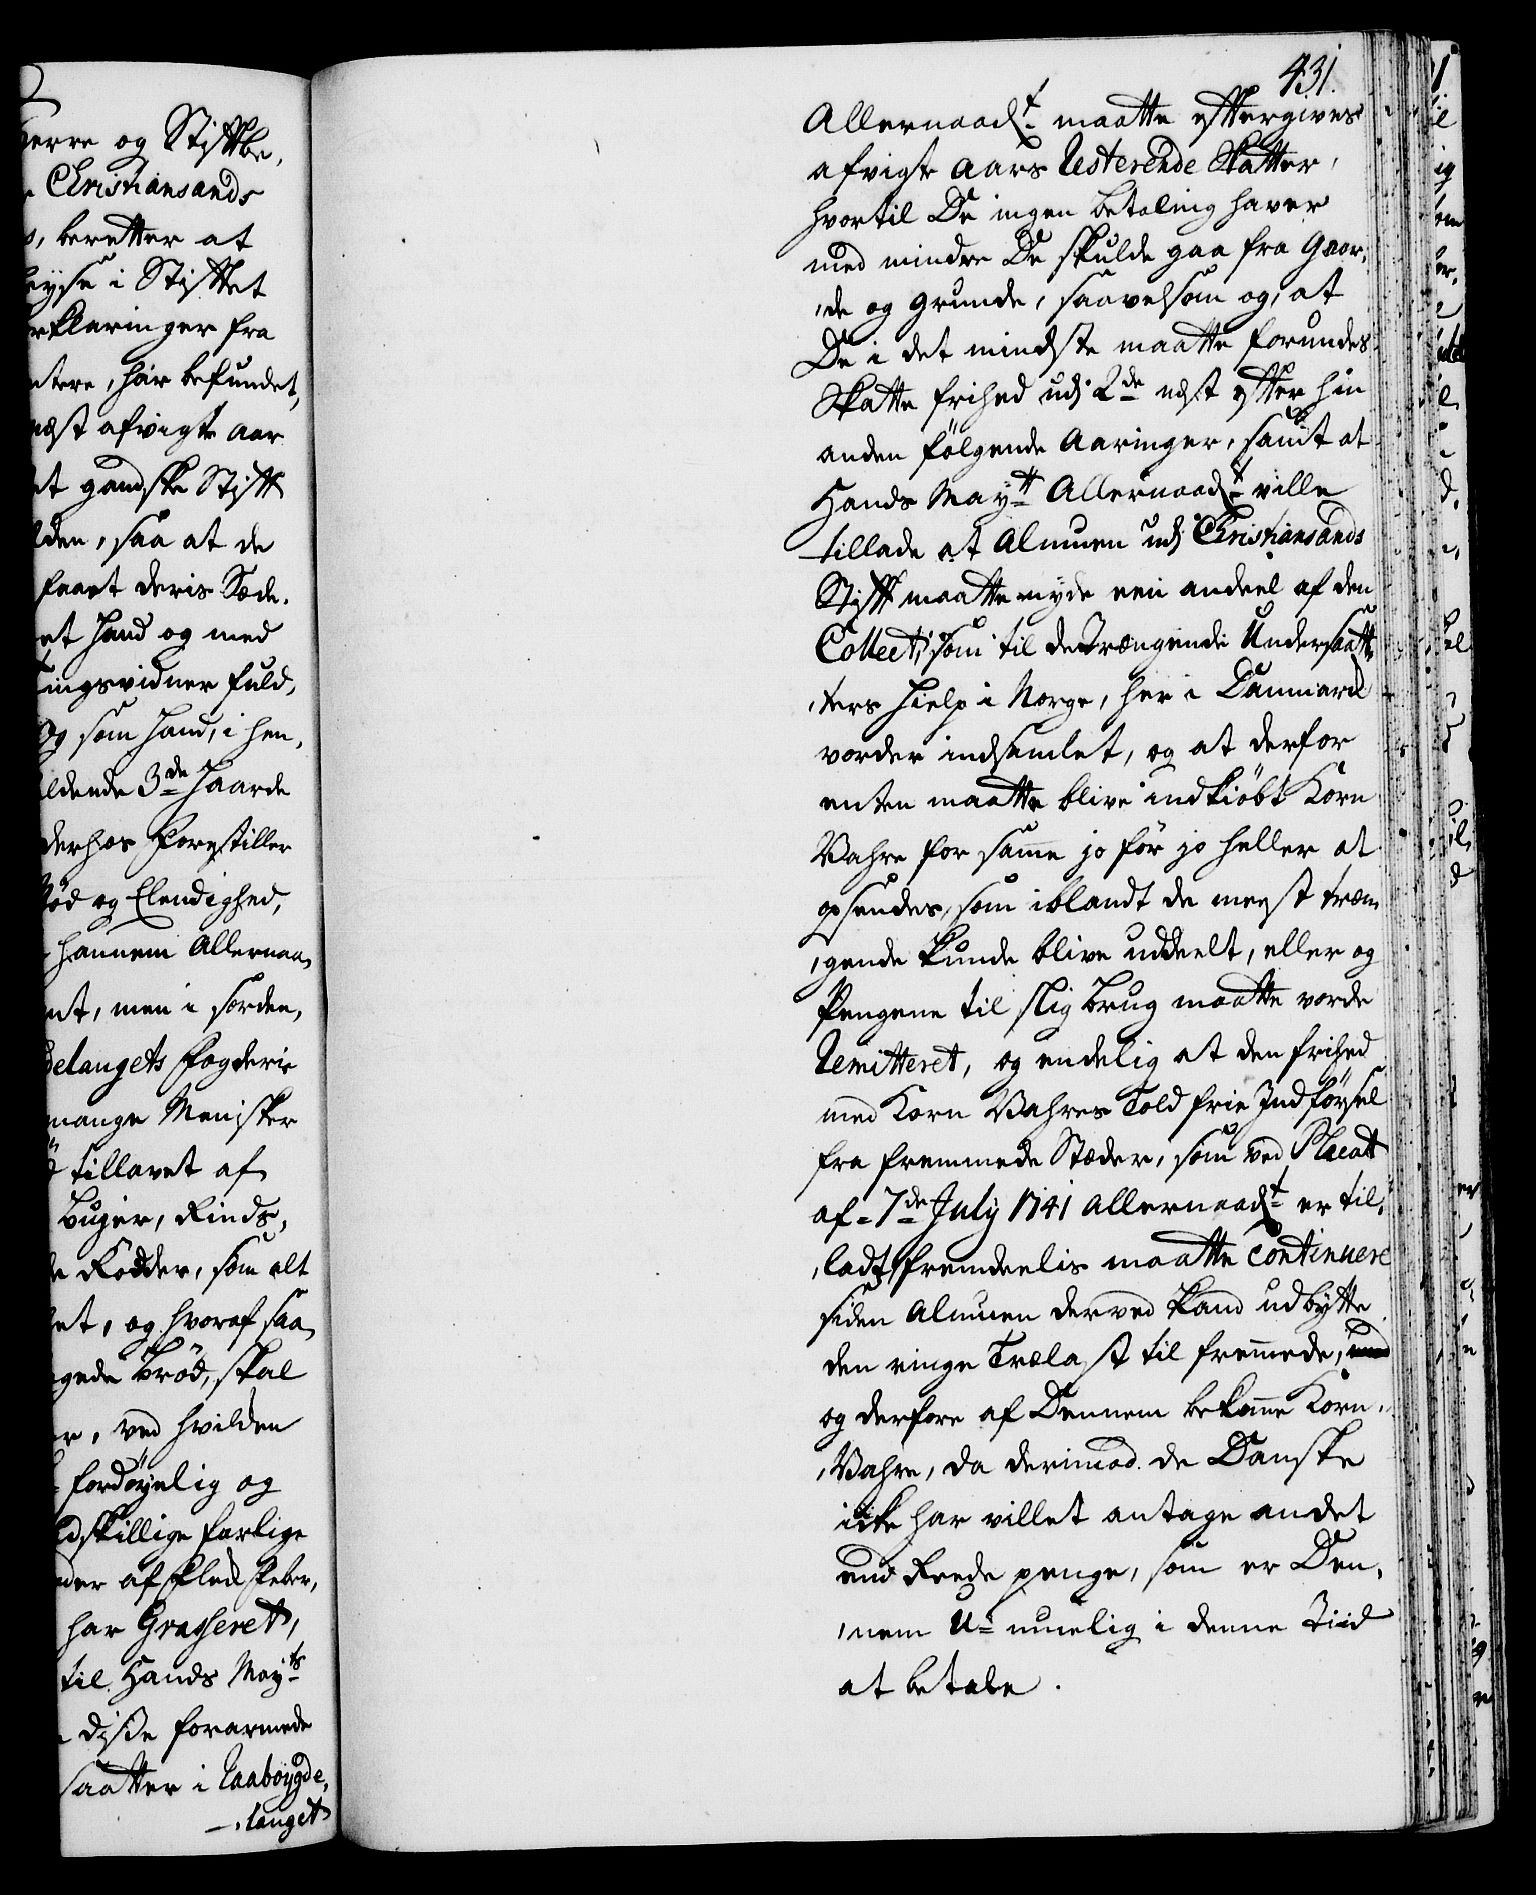 erre og Stiftbe,
Christiansands
, beretter at
eyse i Stiftet
rklaringer fra
ntere, har befundet,
næst afvigte Aar
et gandske Stift
lden, saa at de
faaet deris Sæde,
et hand og med
tingsvidner fuld,
Og som hand, i hen,
ldende 3de haarde
derhos forestiller
Nød og Elendighed,
hannem Allernaa,
nt, men i særde,
delaugets fogderie
mange Menisker
tillavet af
buger, Rinds,
de Rødder, som alt
et, og hvoraf saa
gede brød, skal
er, ved hvilden
fordøyelig og
dskillige farlige
der af fleckfeber,
har Grasseret,
til Hands Mayts
disse forarmede
saatter i Raabøygde,
lauget
431.
Allernaadt maatte eftergives
afvigte Aars Resterende Skatter,
hvortil De ingen betaling haver
med mindre De skulde gaa fra Gaar,
,de og Grunde, saavelsom og, at
De i det mindste maatte forundes
Skatte frihed udi 2de nest efter hin
anden følgende Aaringer, samt at
Hands Maytt Allernaadt ville
tillade at Almuen udi Christiansands
Stift maatte nyde een andeel af den
Collect, som til de Trængende Undersaatt
,ters Hielp i Norge, her i Danmarck
vorder indsamlet, og at derfor
enten maatte blive indkiøbt Korn
Vahre for samme jo før jo heller at
opsendes, som iblandt de meest træn
,gende kunde blive uddeelt, eller og
Pengene til slig brug maatte vorde
Remitteret, og endelig at den frihed
med Korn Vahres Told frie Indførsel
fra fremmede Stæder, som ved Placat
af 7de July 1741 Allernaadt er til,
,ladt, fremdeelis maatte Continuere
siden Almuen derved kand udbytte
den ringe Trælast til fremmede,
og derfore af Dennem bekomme Korn,
,Vahre, da derimod de Danske
icke har villet antage andet
end Reede penge, som er Den,
,nem U-muelig i denne Tiid
at betale.